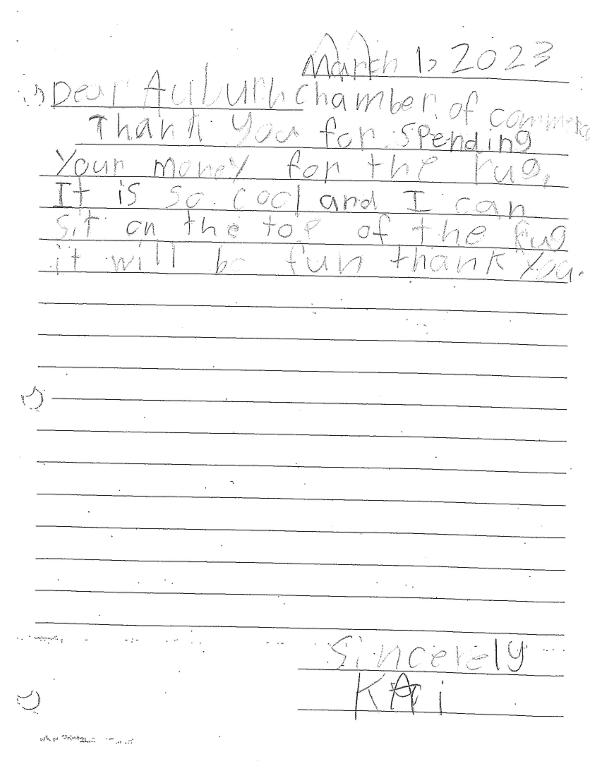 March 1, 2023
Dear Auburn Chamber of commerce
Thank You for spending
Your money for the rug.
It is so cool and I can
sit on the top of the Rug
it will be fun thank You.
Sincerely
KAi